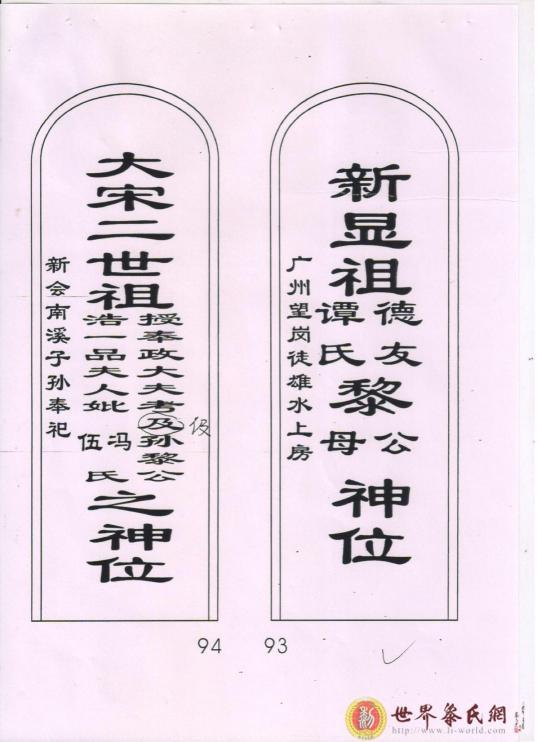 新显祖
德友
谭氏
黎
公
母
神位
广州望岗徒雄水上房
93
大宋二世祖
授奉政大夫考及孙黎公
伋
浩一品夫人妣
冯
伍
氏
之神位
新会南溪子孙奉祀
94
世界黎氏網
http://www.li-world.com